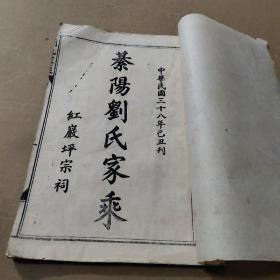 中華民國三十八年己丑刊
綦陽劉氏家乘
紅巖坪宗祠